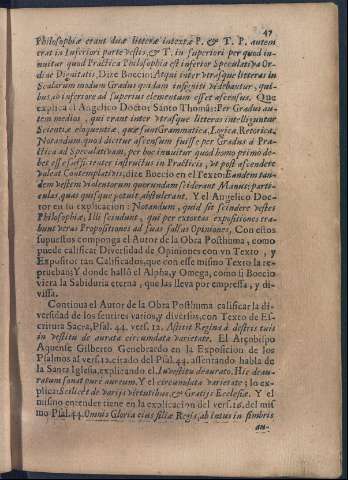 47
Philosophiæ erant duæ litteræ intextæ P. & T. P. autem
erat in Inferiori parte vestis, & T. in superiori per quod in-
nuitur quod Practica Philosophia est inferior Speculativa Or-
dine Dignitatis, Dize Boecio: Atqui inter vtrasque litteras in
Scalarum modum Gradus quidam insigniti vedebantur, qui-
bus, ab inferiore ad superius elementum esset ascensus. Que
explica el Angelico Doctor Santo Thomàs: Per Gradus au-
tem medios, qui erant inter vtrasque litteras intelliguntur
Scientiæ eloquentiæ, quæ sunt Grammatica, Logica, Retorica,
Notandum quod dicitur ascensum fuisse per Gradus à Pra-
ctica ad Speculativam, per hoc innuitur quod homo primo de-
bet esse sufficienter instructus in Practicis, vt post ascendere
valeat Contemplativis; dize Boecio en el Texto: Eandem tan-
dem vestem violentorum quorundam sciderant Manus; parti-
culas, quas quisque potuit, abstulerant. Y el Angelico Doc-
tor en su explicacion: Notandum, quid sit scindere vestes
Philosophiæ, Illi scindunt, qui per extortas expositiones tra-
hunt veras Propositiones ad suas falsas Opiniones, Con estos
supuestos componga el Autor de la Obra Posthuma, como
puede calificar Diversidad de Opiniones con vn Texto, y
Expositor tan Calificados, que con esse mismo Texto la re-
prueban; Y donde hallò el Alpha, y Omega, como si Boecio
viera la Sabiduria eterna, que las lleva por empressa, y di-
vissa.
Continua el Autor de la Obra Posthuma calificar la di-
versidad de los sentires varios, y diversos, con Texto de Es-
critura Sacra, Psal. 44. vers. 12. Astitit Regina à destris tuis
in vestitu de aurato circumdata varietate. El Arçobispo
Aquense Gilberto Genebrardo en la Exposicion de los
Psalmos al vers. 12. citado del Psal. 44. assentando habla de
la Santa Iglesia, explicando el In vestitu deaurato. Hic deau-
ratum sonat pure aureum. Y el circumdata varietate; lo ex-
plica: Scilicèt de varijs virtutibus, & Gratijs Ecclesiæ. Y el
mismo entender tiene en la explicacion del vers. 16. del mis
mo Psal. 44. Omnis Gloria eius filiæ Regis, ab intus in fimbris
au-